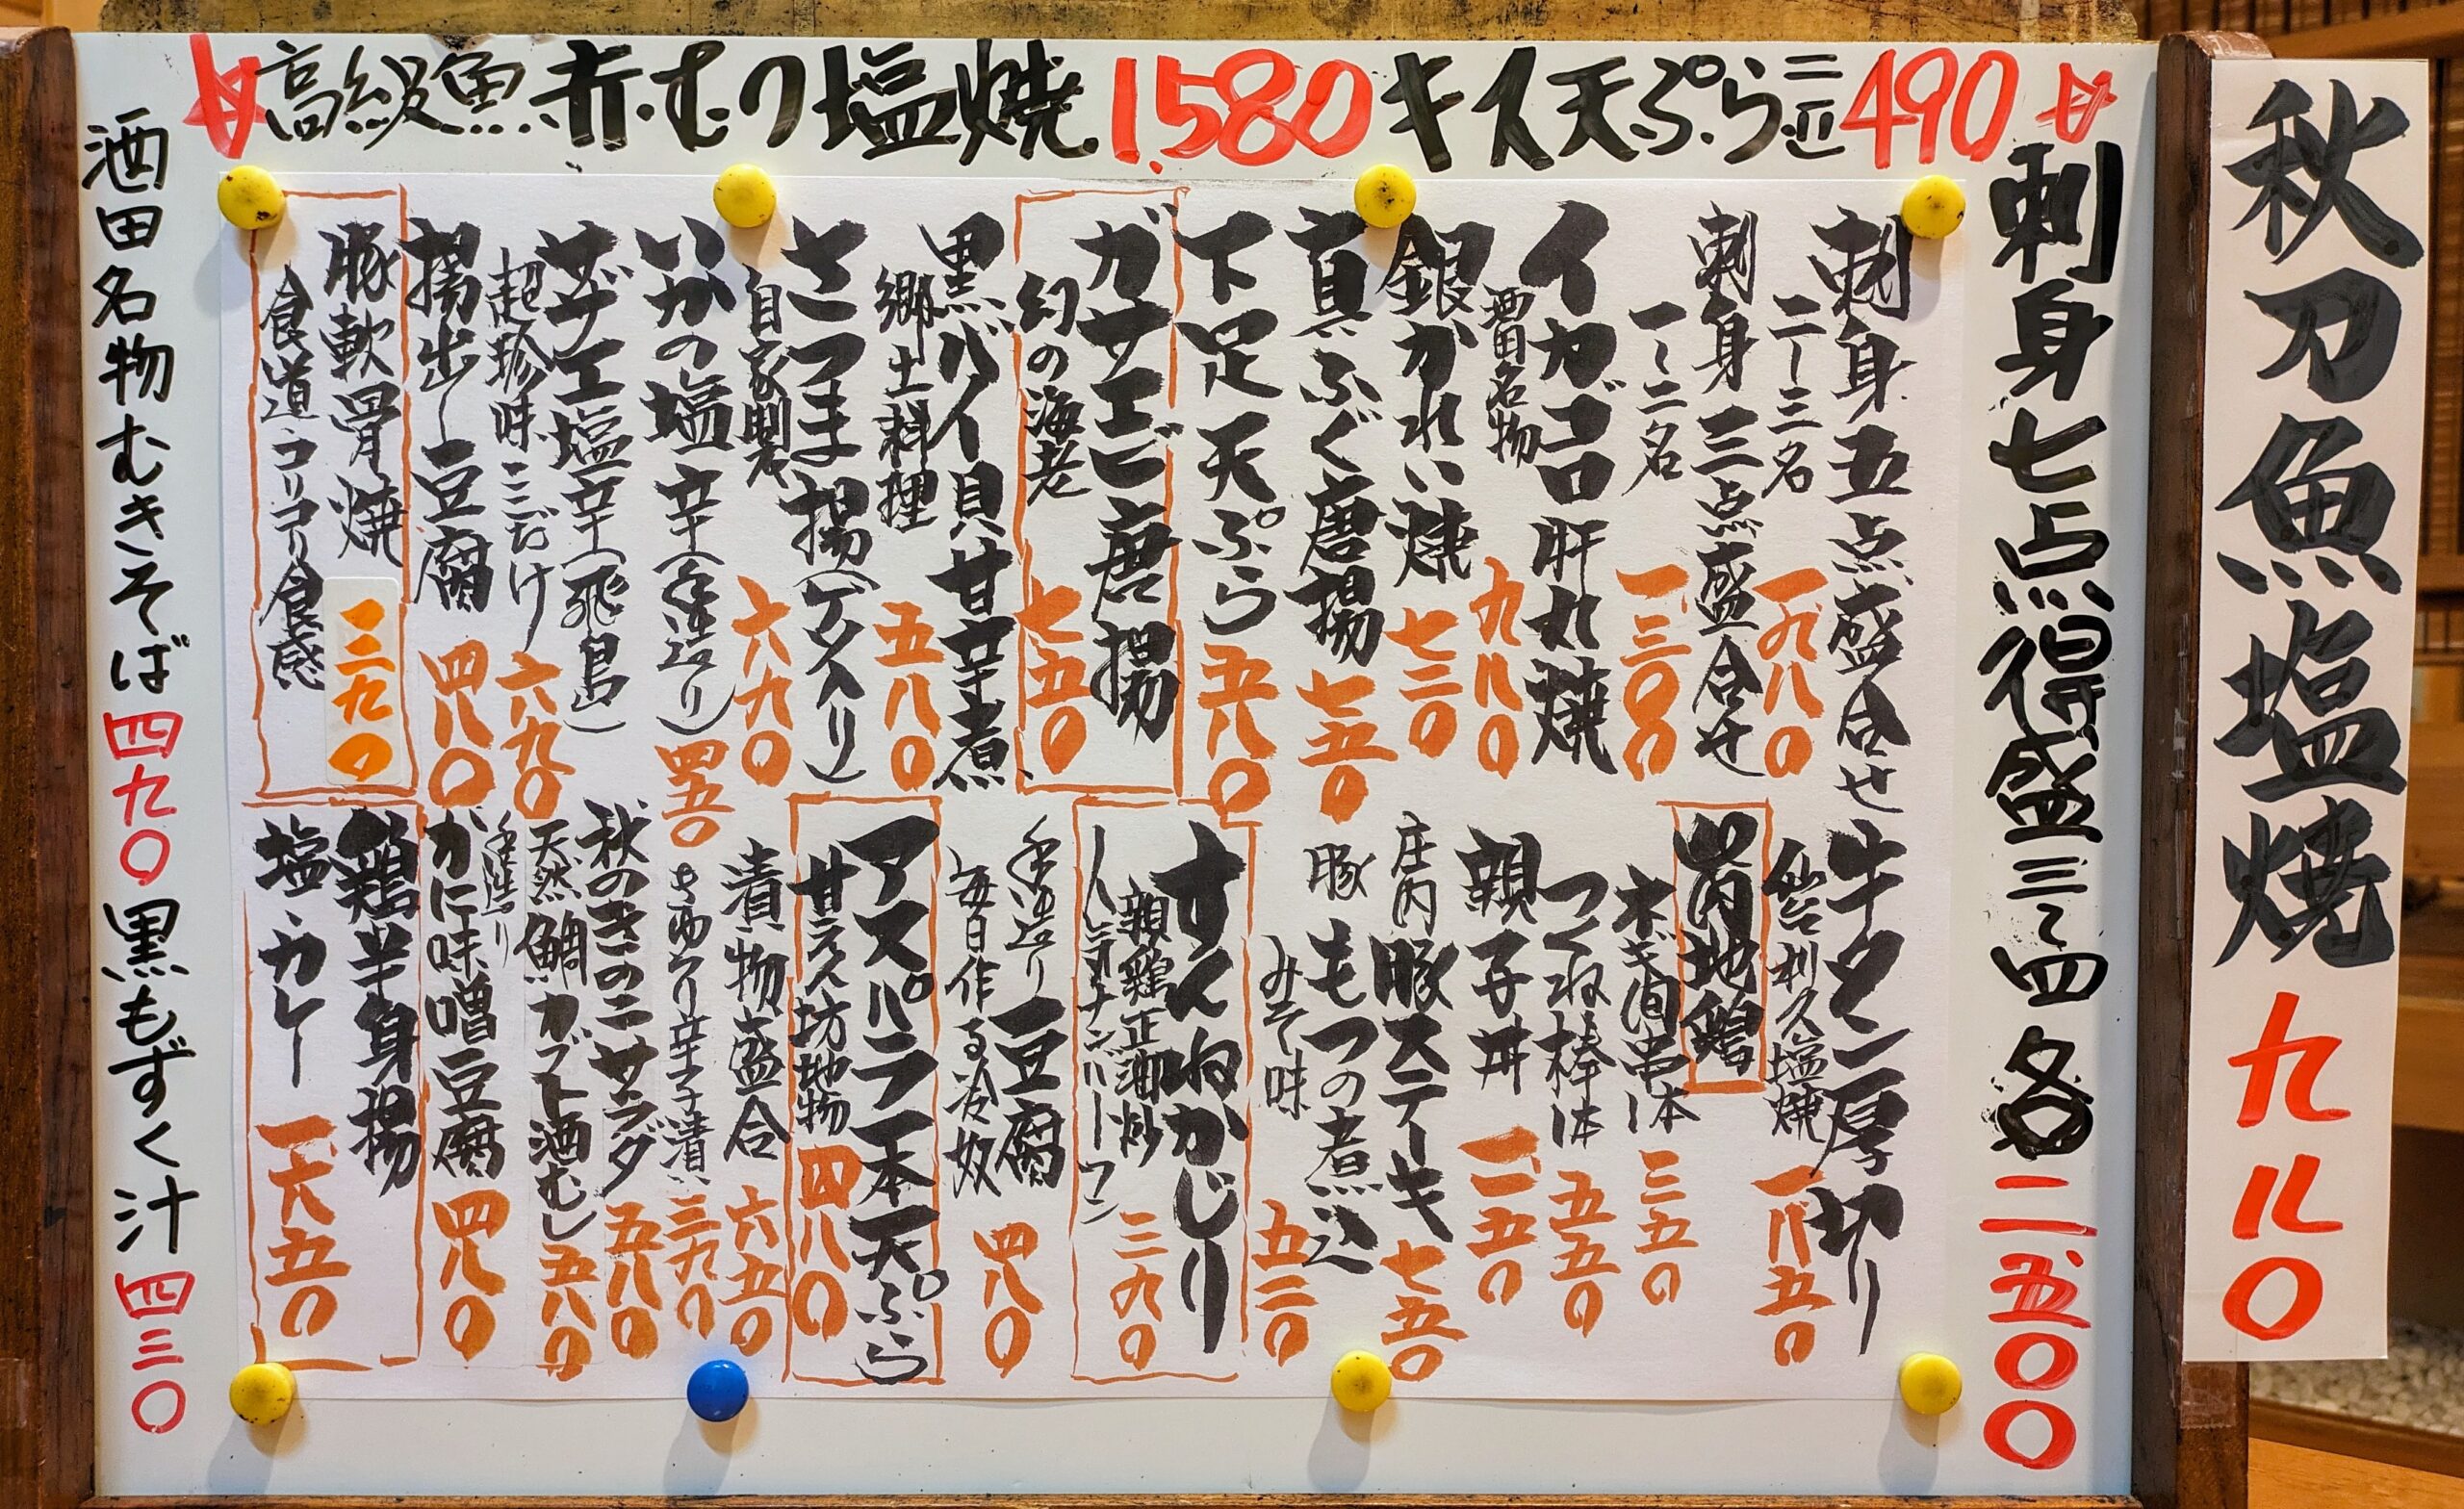 秋刀魚塩焼 九八〇
☆高級魚赤むつ塩焼1580 キス天ぷら二匹490☆
刺身七点得盛三〜四名二、五〇〇
刺身五点盛合せ
二〜三名 一、九八〇
刺身三点盛合せ
一〜二名 一、三〇〇
イカゴロ肝丸焼
酒田名物 九八〇
銀かれい焼 七二〇
真ふぐ唐揚 七五〇
下足天ぷら 五八〇
ガサエビ唐揚
幻の海老 七五〇
黒バイ貝甘辛煮
郷土料理 五八〇
さつま揚(ゲソ入り)
自家製 六九〇
いかの塩辛(手造り) 四五〇
サザエ塩辛(飛島)
超珍味ここだけ 六九〇
揚出し豆腐 四八〇
豚軟骨焼 一二九〇
食道・コリコリ食感
牛タン厚切り
仙台利久塩焼 一、八五〇
山内地鶏
ネギ間串一本 三五〇
つくね棒一本 五五〇
親子丼 一、一五〇
庄内豚ステーキ 七五〇
豚もつの煮込
みそ味 五二〇
すんねかじり
親鶏正油炒
人気ナンバーワン 三九〇
手造り豆腐
毎日作る冷奴 四八〇
アスパラ一本天ぷら
甘えん坊地物 四八〇
漬物盛合 六五〇
きゅうり辛子漬 三九〇
秋のきのこサラダ 五八〇
天然鯛カブト酒むし 五八〇
手造り
かに味噌豆腐 四八〇
鶏半身揚
塩・カレー 一、六五〇
酒田名物むきそば四九〇 黒もずく汁四三〇